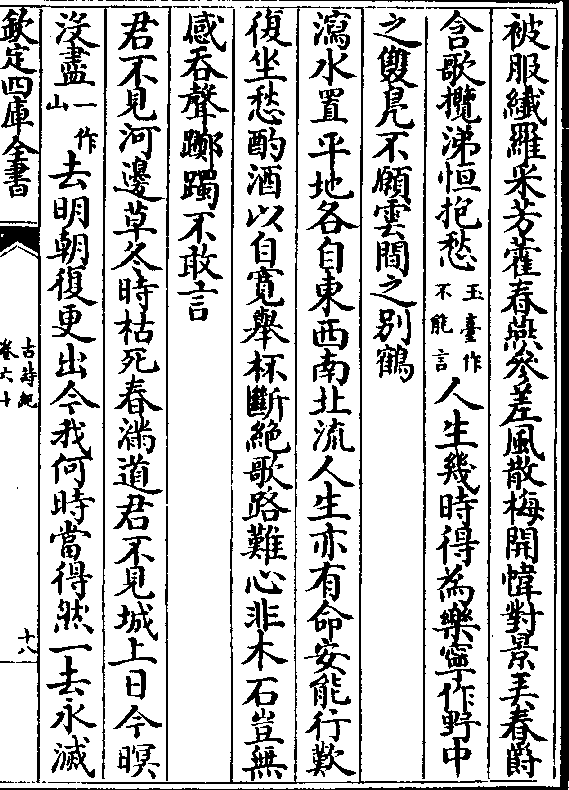 被服纖羅采芳藿春燕參差風散梅開幃對景弄春爵
含歌攬涕恒抱愁玉臺作不能言人生幾時得為樂寧作野中
之雙鳧不願雲間之别鶴
瀉水置平地各自東西南北流人生亦有命安能行歎
復坐愁酌酒以自寛舉杯斷絶歌路難心非木石豈無
感吞聲躑躅不敢言
君不見河邊草冬時枯死春滿道君不見城上日今暝
没盡一作山去明朝復更出今我何時當得然一去永滅
欽定四庫全書
古詩紀
卷六十
十八